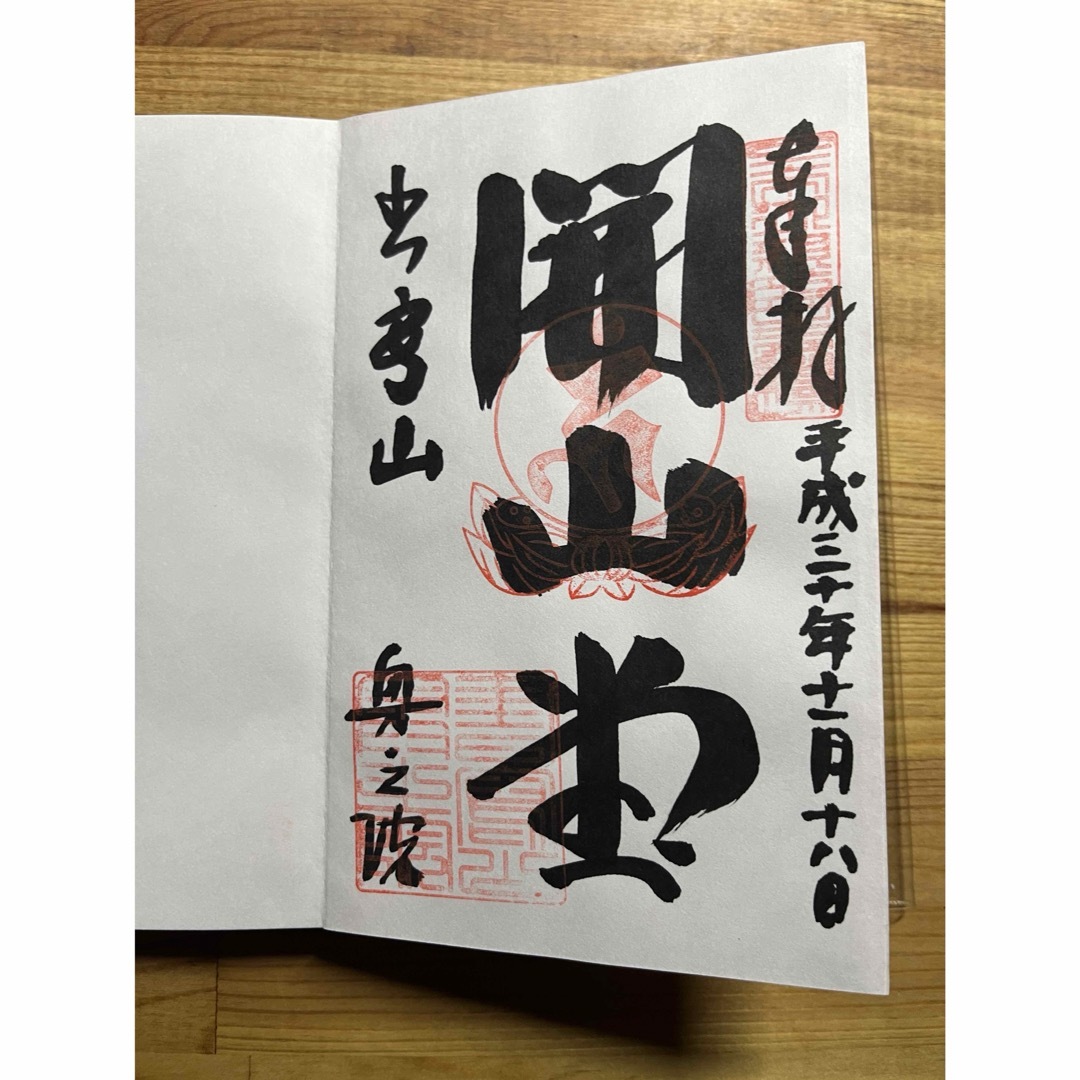 奉拝
平成三十年十一月十八日
開山堂
書写山
奥之院